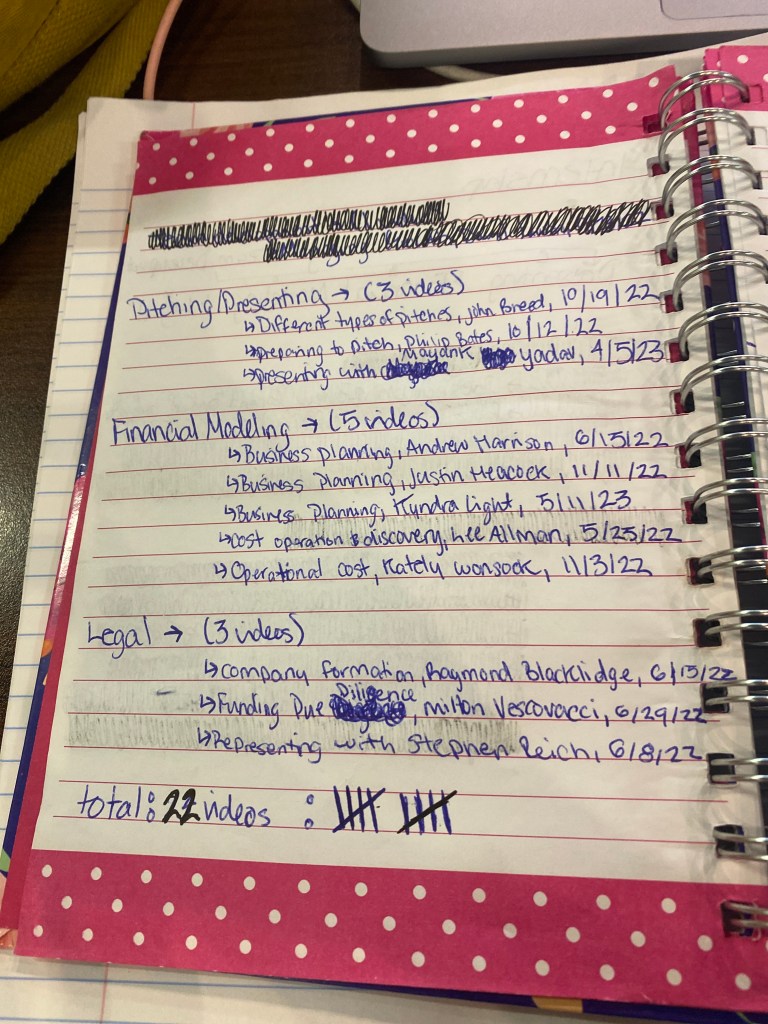 Pitching/Presenting → (3 videos)
↳ Different types of pitches, John Breed, 10/19/22
↳ preparing to pitch, Philip Bates, 10/12/22
↳ presenting with Mayank Yadav, 4/5/23
Financial Modeling → (5 videos)
↳ Business planning, Andrew Harrison, 6/15/22
↳ Business planning, Justin Heacock, 11/11/22
↳ Business Planning, Kyndra Light, 5/11/23
↳ cost operation & discovery, Lee Allman, 5/25/22
↳ Operational cost, Kately wonsock, 11/3/22
Legal → (3 videos)
↳ company formation, Raymond Blacklidge, 6/15/22
↳ Funding Due Diligence, Milton Vescovacci, 6/29/22
↳ Representing with Stephen Reich, 6/8/22
total: 22 videos :